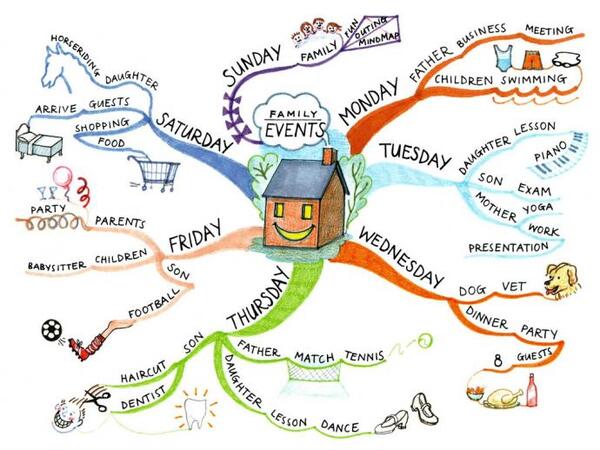 FAMILY
EVENTS
SUNDAY
FAMILY
FUN
OUTING
MINDMAP
MONDAY
FATHER BUSINESS MEETING
CHILDREN SWIMMING
TUESDAY
DAUGHTER LESSON
PIANO
SON EXAM
MOTHER YOGA
WORK
PRESENTATION
WEDNESDAY
DOG VET
DINNER PARTY
8 GUESTS
THURSDAY
FATHER MATCH TENNIS
DAUGHTER LESSON DANCE
SON
HAIRCUT
DENTIST
FRIDAY
PARENTS
PARTY
CHILDREN
BABYSITTER
SON
FOOTBALL
SATURDAY
HORSERIDING DAUGHTER
ARRIVE GUESTS
SHOPPING
FOOD